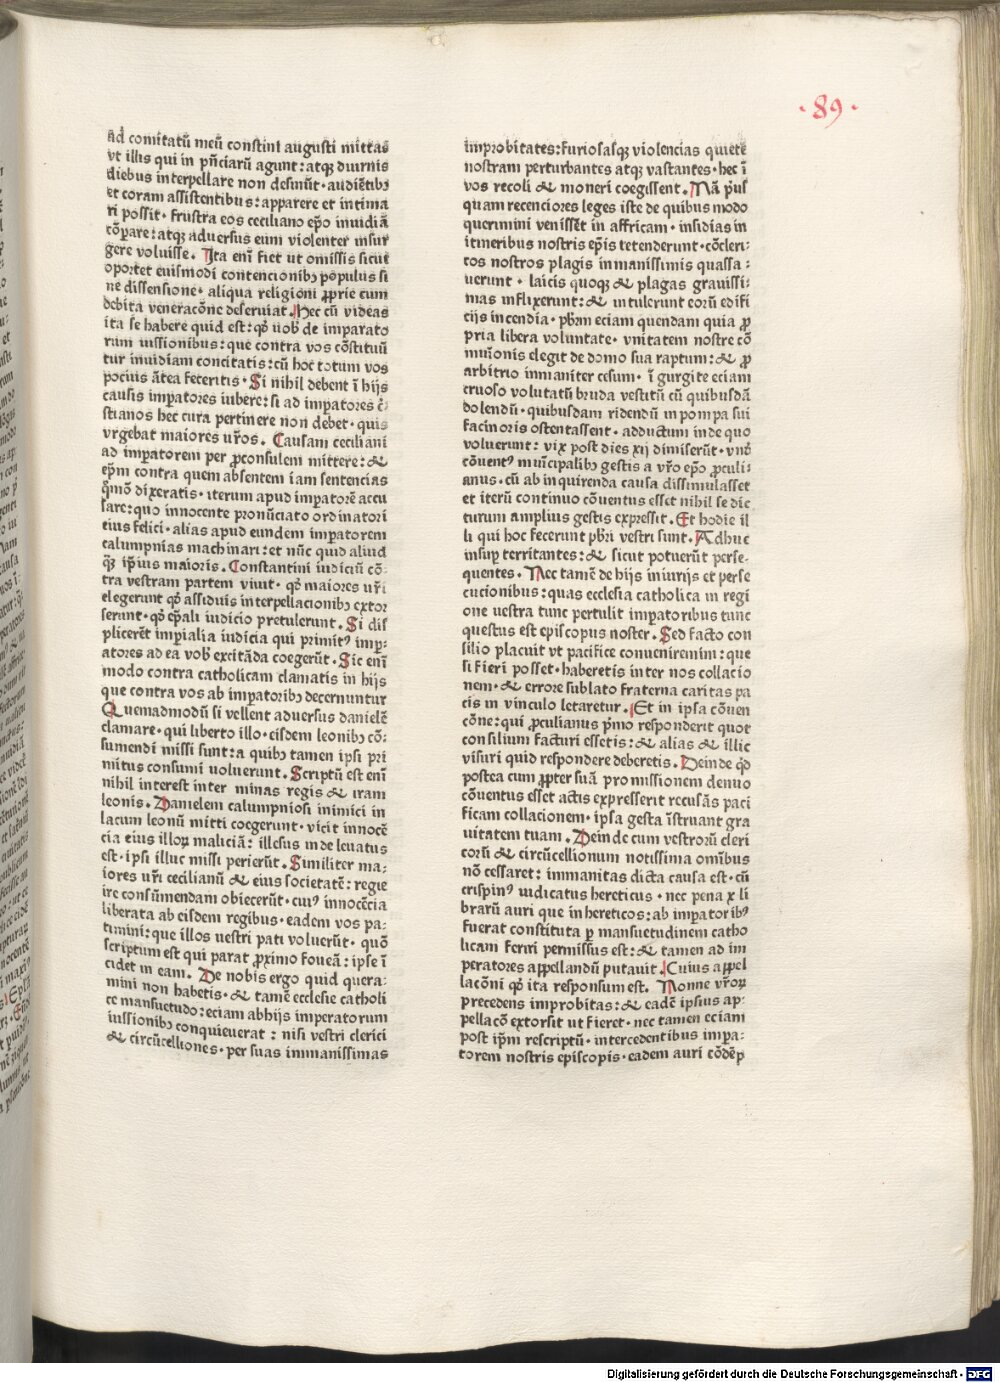 · 89 ·
ad comitatū meū constini augusti mittas
vt illis qui in pn̄ciarū agunt : atqꝫ diurnis
diebus interpellare non desinūt · audiētibꝫ
et coram assistentibus : apparere et intima
ri possit · frustra eos ceciliano ep̄o inuidiā
cōparare : atqꝫ aduersus eum violenter insur
gere voluisse . Ita enī fiet ut omissis sicut
oportet euismodi contencionibꝫ populus si
ne dissensione · aliqua religioni ꝓprie cum
debita veneracōne deseruiat . Hec cū videas
ita se habere quid est : qd̓ uob̓ de imparato
rum iussionibus : que contra vos cōstituū
tur inuidiam concitatis : cū hoc totum vos
pocius ātea feceritis · Si nihil debent ī hijs
causis imꝑatores iubere : si ad imꝑatores c̄i
stianos hec cura pertinere non debet · quis
vrgebat maiores ur̄os . Causam ceciliani
ad imꝑatorem per ꝓconsulem mittere : &
ep̄m contra quem absentem iam sentencias
qūo dixeratis · iterum apud imꝑatorē accu
sare : quo innocente pronūciato ordinatori
eius felici · alias apud eundem imꝑatorem
calumpnias machinari : et nūc quid aliud
qꝫ ip̄ius maioris . Constantini iudiciū cō-
tra vestram partem viuit · qd̓ maiores ur̄i
elegerunt qd̓ assiduis interpellacionibꝫ extor
serunt · qd̓ ep̄ali iudicio pretulerunt . Si dis
plicerēt imꝑialia iudicia qui primitꝰ imꝑ-
atores ad ea vob̓ excitāda coegerūt . Sic enī
modo contra catholicam clamatis in hijs
que contra vos ab imꝑatoribꝫ decernuntur
Quemadmodū si vellent aduersus danielē
clamare · qui liberto illo · eisdem leonibꝫ cō-
sumendi missi sunt : a quibꝫ tamen ipsi pri
mitus consumi voluerunt . Scriptū est enī
nihil interest inter minas regis & iram
leonis . Danielem calumpniosi inimici in
lacum leonū mitti coegerunt · vicit innocē
cia eius illoꝝ maliciā : illesus inde leuatus
est · ipsi illuc missi perierūt . Similiter ma-
iores ur̄i cecilianū & eius societatē : regie
ire consūmendam obiecerūt · cuiꝰ innocēcia
liberata ab eisdem regibus · eadem vos pa-
timini : que illos uestri pati voluerūt · quō
scriptum est qui parat ꝓximo foueā : ipse ī
cidet in eam . De nobis ergo quid quera-
mini non habetis · & tamē ecclesie catholi
ce mansuetudo : eciam abhijs imperatorum
iussionibꝫ conquieuerat : nisi vestri clerici
& circūcelliones · per suas immanissimas
improbitates : furiosasqꝫ violencias quietē
nostram perturbantes atqꝫ vastantes · hec ī
vos recoli & moneri coegissent . Nā pͥus
quam recenciores leges iste de quibus modo
querimini venissēt in affricam · insidias in
itineribus nostris ep̄is tetenderunt · cōcleri-
cos nostros plagis inmanissimis quassa :
uerunt · laicis quoqꝫ & plagas grauissi-
mas inflixerunt : & intulerunt eorū edifi
cijs incendia · pb̄rm eciam quendam quia ꝓ
pria libera voluntate · vnitatem nostre cō
mūionis elegit de domo sua raptum : & ꝓ
arbitrio inmaniter cesum · ī gurgite eciam
ceruoso volutatū bruda vestitū cū quibusdā
dolendū · quibusdam ridendū in pompa sui
facinoris ostentassent · adductum inde quo
voluerunt : vix post dies xij dimiserūt · vnd̓
cōuentꝰ mūicipalibꝫ gestis a vr̄o ep̄o ꝓculi-
anus · cū ab inquirenda causa dissimulasset
et iterū continuo cōuentus esset nihil se dic
turum amplius gestis expressit . Et hodie il
li qui hoc fecerunt pb̄ri vestri sunt . Adhuc
insuꝑ territantes : & sicut potuerūt perse-
quentes . Nec tamē de hijs iniurijs et perse
cucionibus : quas ecclesia catholica in regi
one uestra tunc pertulit imꝑatoribus tunc
questus est episcopus noster . Sed facto con
silio placuit vt pacifice conueniremini : que
si fieri posset · haberetis inter nos collacio
nem · & errore sublato fraterna caritas pa
cis in vinculo letaretur . Et in ipsa cōuen
cōne : qui ꝓculianus pͥmo responderit quot
consilium facturi essetis : & alias & illic
visuri quid respondere deberetis . Deinde qd̓
postea cum ꝓpter suā promissionem denuo
cōuentus esset actis expresserit recusās paci
ficam collacionem · ipsa gesta īstruant gra
uitatem tuam . Deinde cum vestrorū cleri
corū & circūcellionum notissima om̄ibus
nō cessaret : immanitas dicta causa est · cū
crispinꝰ iudicatus hereticus · nec pena x li
brarū auri que in hereticos : ab imꝑatoribꝰ
fuerat constituta ꝑ mansuetudinem catho
licam feriri permissus est : & tamen ad im
peratores appellandū putauit . Cuius appel
lacōni qd̓ ita responsum est . Nonne vr̄oꝝ
precedens improbitas : & eadē ipsius ap-
pellacō extorsit ut fieret · nec tamen eciam
post ip̄m rescriptū · intercedentibus imꝑa-
torem nostris episcopis · eadem auri cōdēp
Digitalisierung gefördert durch die Deutsche Forschungsgemeinschaft - DFG